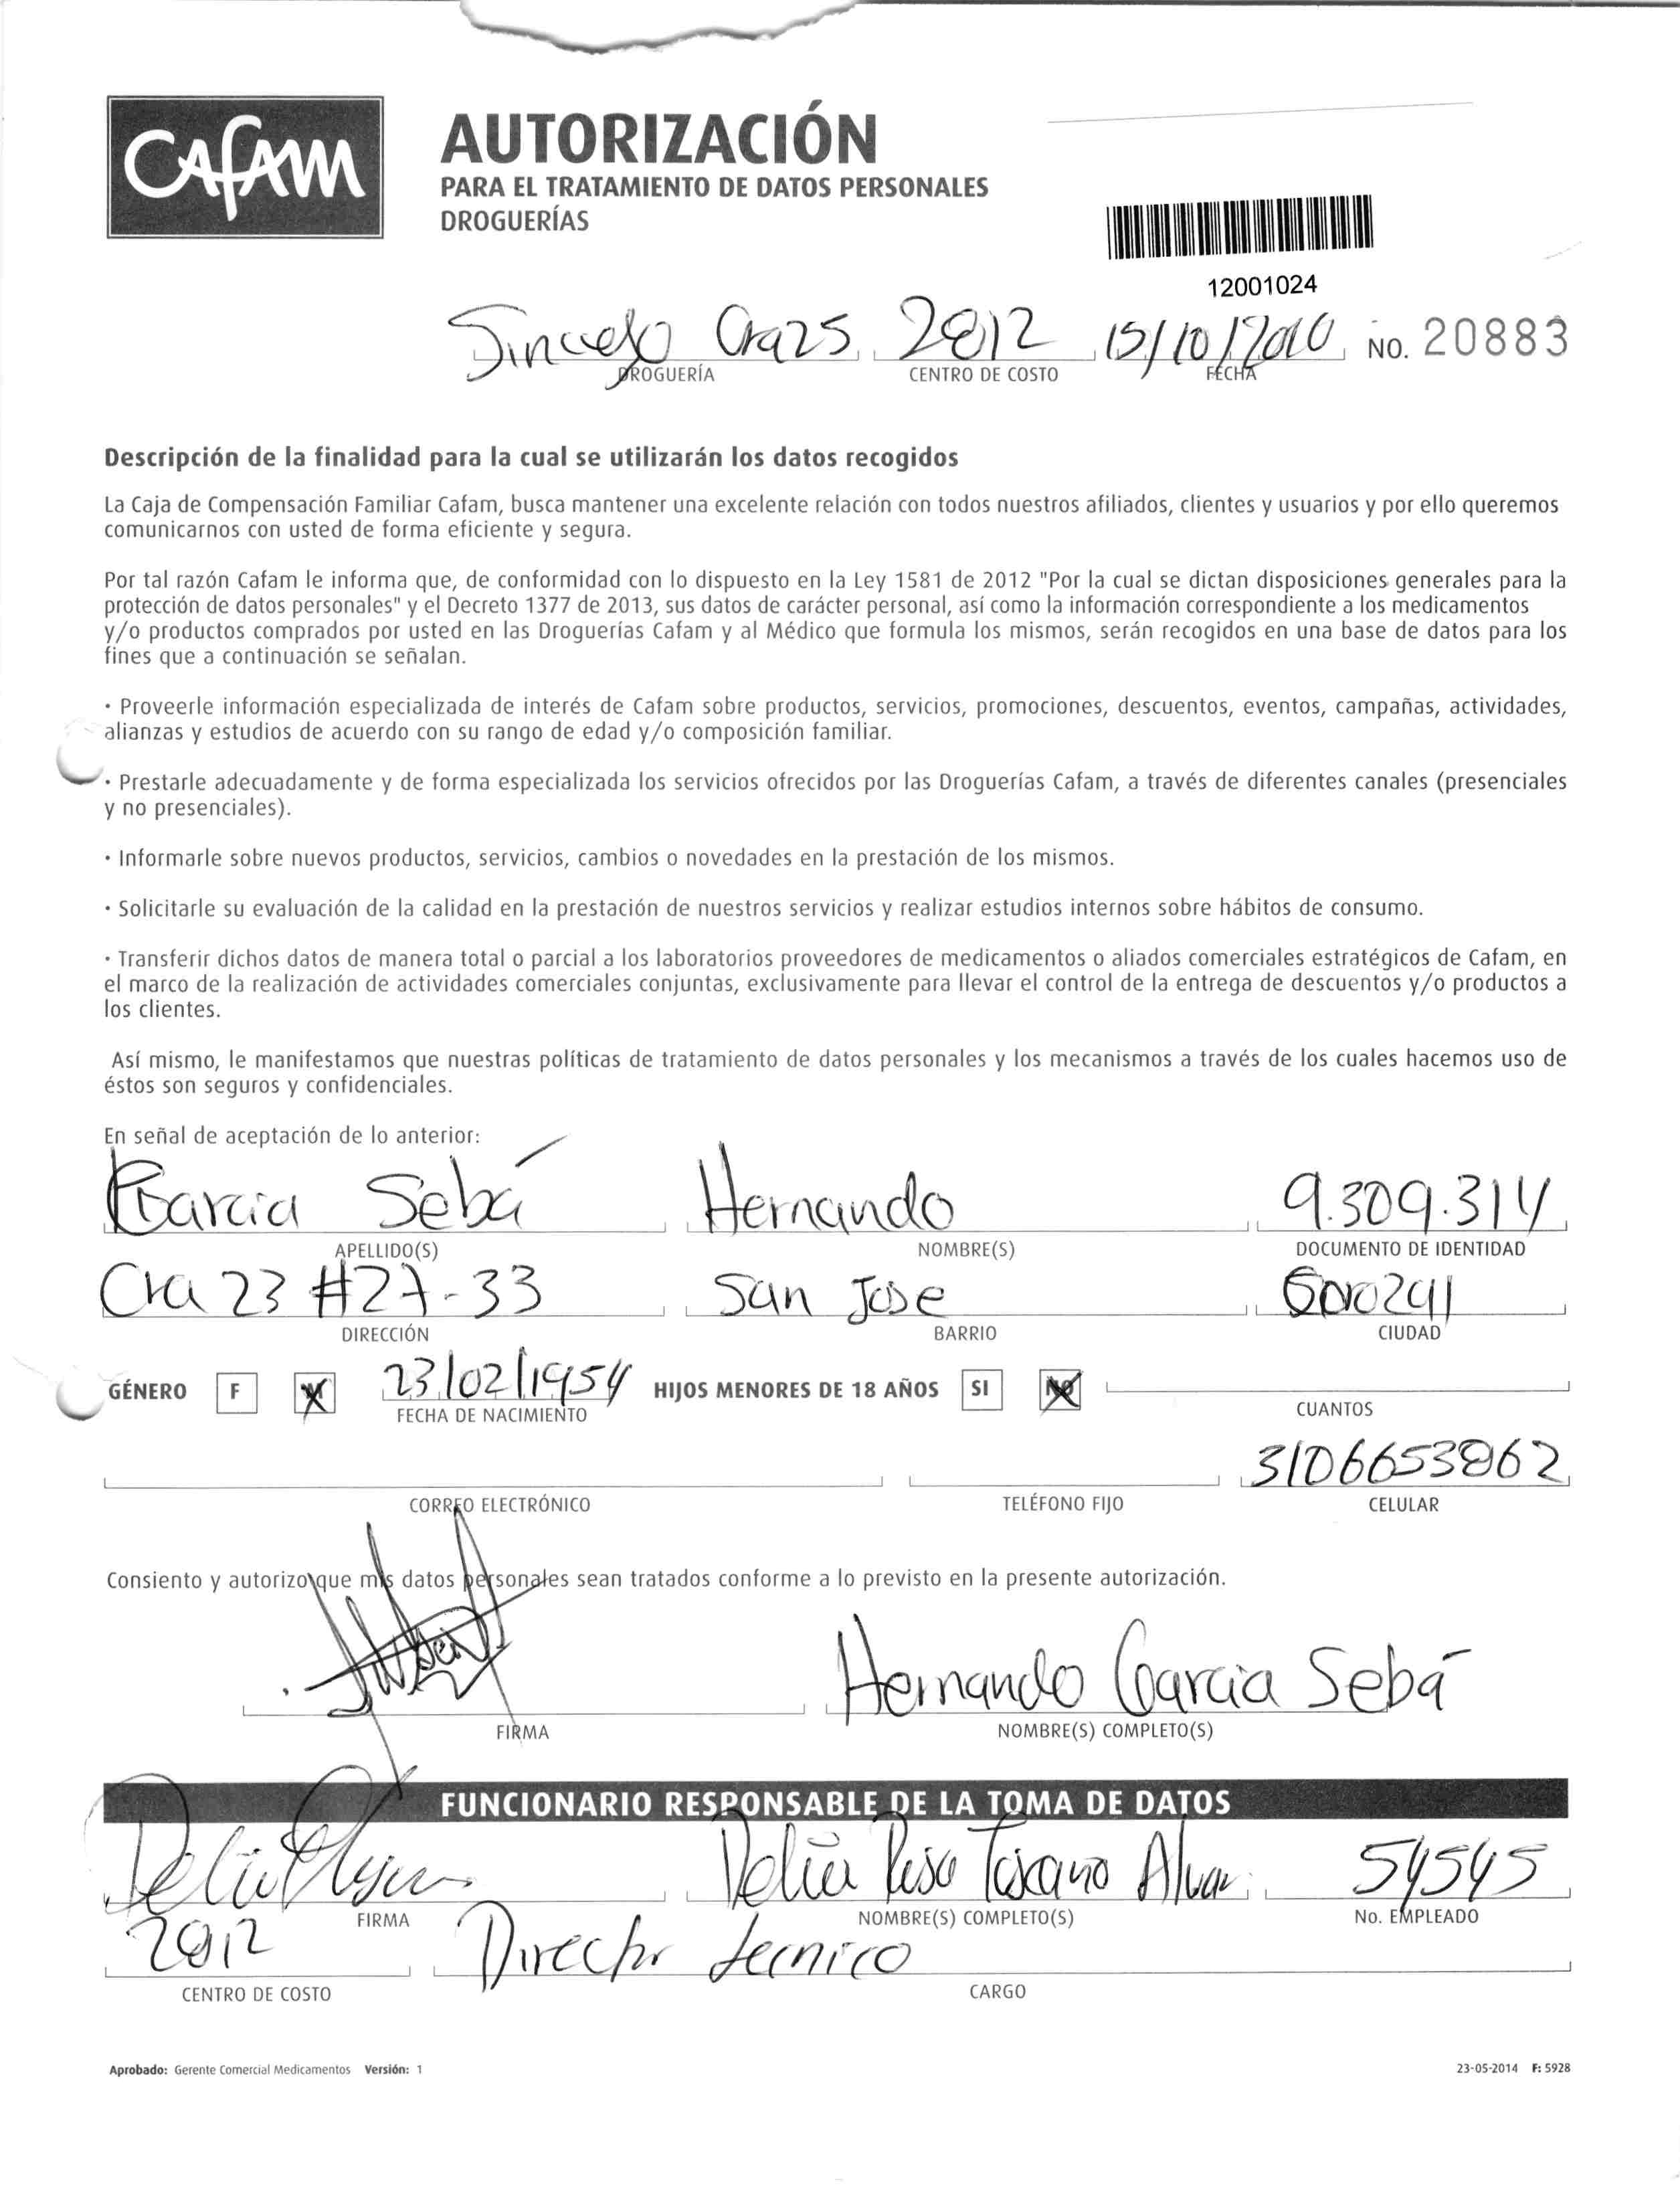 CAFAM
AUTORIZACIÓN
PARA EL TRATAMIENTO DE DATOS PERSONALES
DROGUERÍAS
12001024
Cra25 2812 15/10/ NO. 20883
DROGUERÍA CENTRO DE COSTO FECHA
Descripción de la finalidad para la cual se utilizarán los datos recogidos
La Caja de Compensación Familiar Cafam, busca mantener una excelente relación con todos nuestros afiliados, clientes y usuarios y por ello queremos
comunicarnos con usted de forma eficiente y segura.
Por tal razón Cafam le informa que, de conformidad con lo dispuesto en la Ley 1581 de 2012 "Por la cual se dictan disposiciones generales para la
protección de datos personales" y el Decreto 1377 de 2013, sus datos de carácter personal, así como la información correspondiente a los medicamentos
y/o productos comprados por usted en las Droguerías Cafam y al Médico que formula los mismos, serán recogidos en una base de datos para los
fines que a continuación se señalan.
· Proveerle información especializada de interés de Cafam sobre productos, servicios, promociones, descuentos, eventos, campañas, actividades,
alianzas y estudios de acuerdo con su rango de edad y/o composición familiar.
· Prestarle adecuadamente y de forma especializada los servicios ofrecidos por las Droguerías Cafam, a través de diferentes canales (presenciales
y no presenciales).
· Informarle sobre nuevos productos, servicios, cambios o novedades en la prestación de los mismos.
· Solicitarle su evaluación de la calidad en la prestación de nuestros servicios y realizar estudios internos sobre hábitos de consumo.
· Transferir dichos datos de manera total o parcial a los laboratorios proveedores de medicamentos o aliados comerciales estratégicos de Cafam, en
el marco de la realización de actividades comerciales conjuntas, exclusivamente para llevar el control de la entrega de descuentos y/o productos a
los clientes.
Así mismo, le manifestamos que nuestras políticas de tratamiento de datos personales y los mecanismos a través de los cuales hacemos uso de
éstos son seguros y confidenciales.
En señal de aceptación de lo anterior:
Garcia Sebá Hernando 9.309.314
APELLIDO(S) NOMBRE(S) DOCUMENTO DE IDENTIDAD
Cra 23 #27-33 San Jose Corozal
DIRECCIÓN BARRIO CIUDAD
GÉNERO F M 23/02/1954 HIJOS MENORES DE 18 AÑOS SI NO
FECHA DE NACIMIENTO CUANTOS
3106653862
CORREO ELECTRÓNICO TELÉFONO FIJO CELULAR
Consiento y autorizo que mis datos personales sean tratados conforme a lo previsto en la presente autorización.
Hernando Garcia Sebá
FIRMA NOMBRE(S) COMPLETO(S)
FUNCIONARIO RESPONSABLE DE LA TOMA DE DATOS
Delia Rosa Toscano 54545
FIRMA NOMBRE(S) COMPLETO(S) No. EMPLEADO
2812 Director tecnico
CENTRO DE COSTO CARGO
Aprobado: Gerente Comercial Medicamentos Versión: 1 23-05-2014 F: 5928